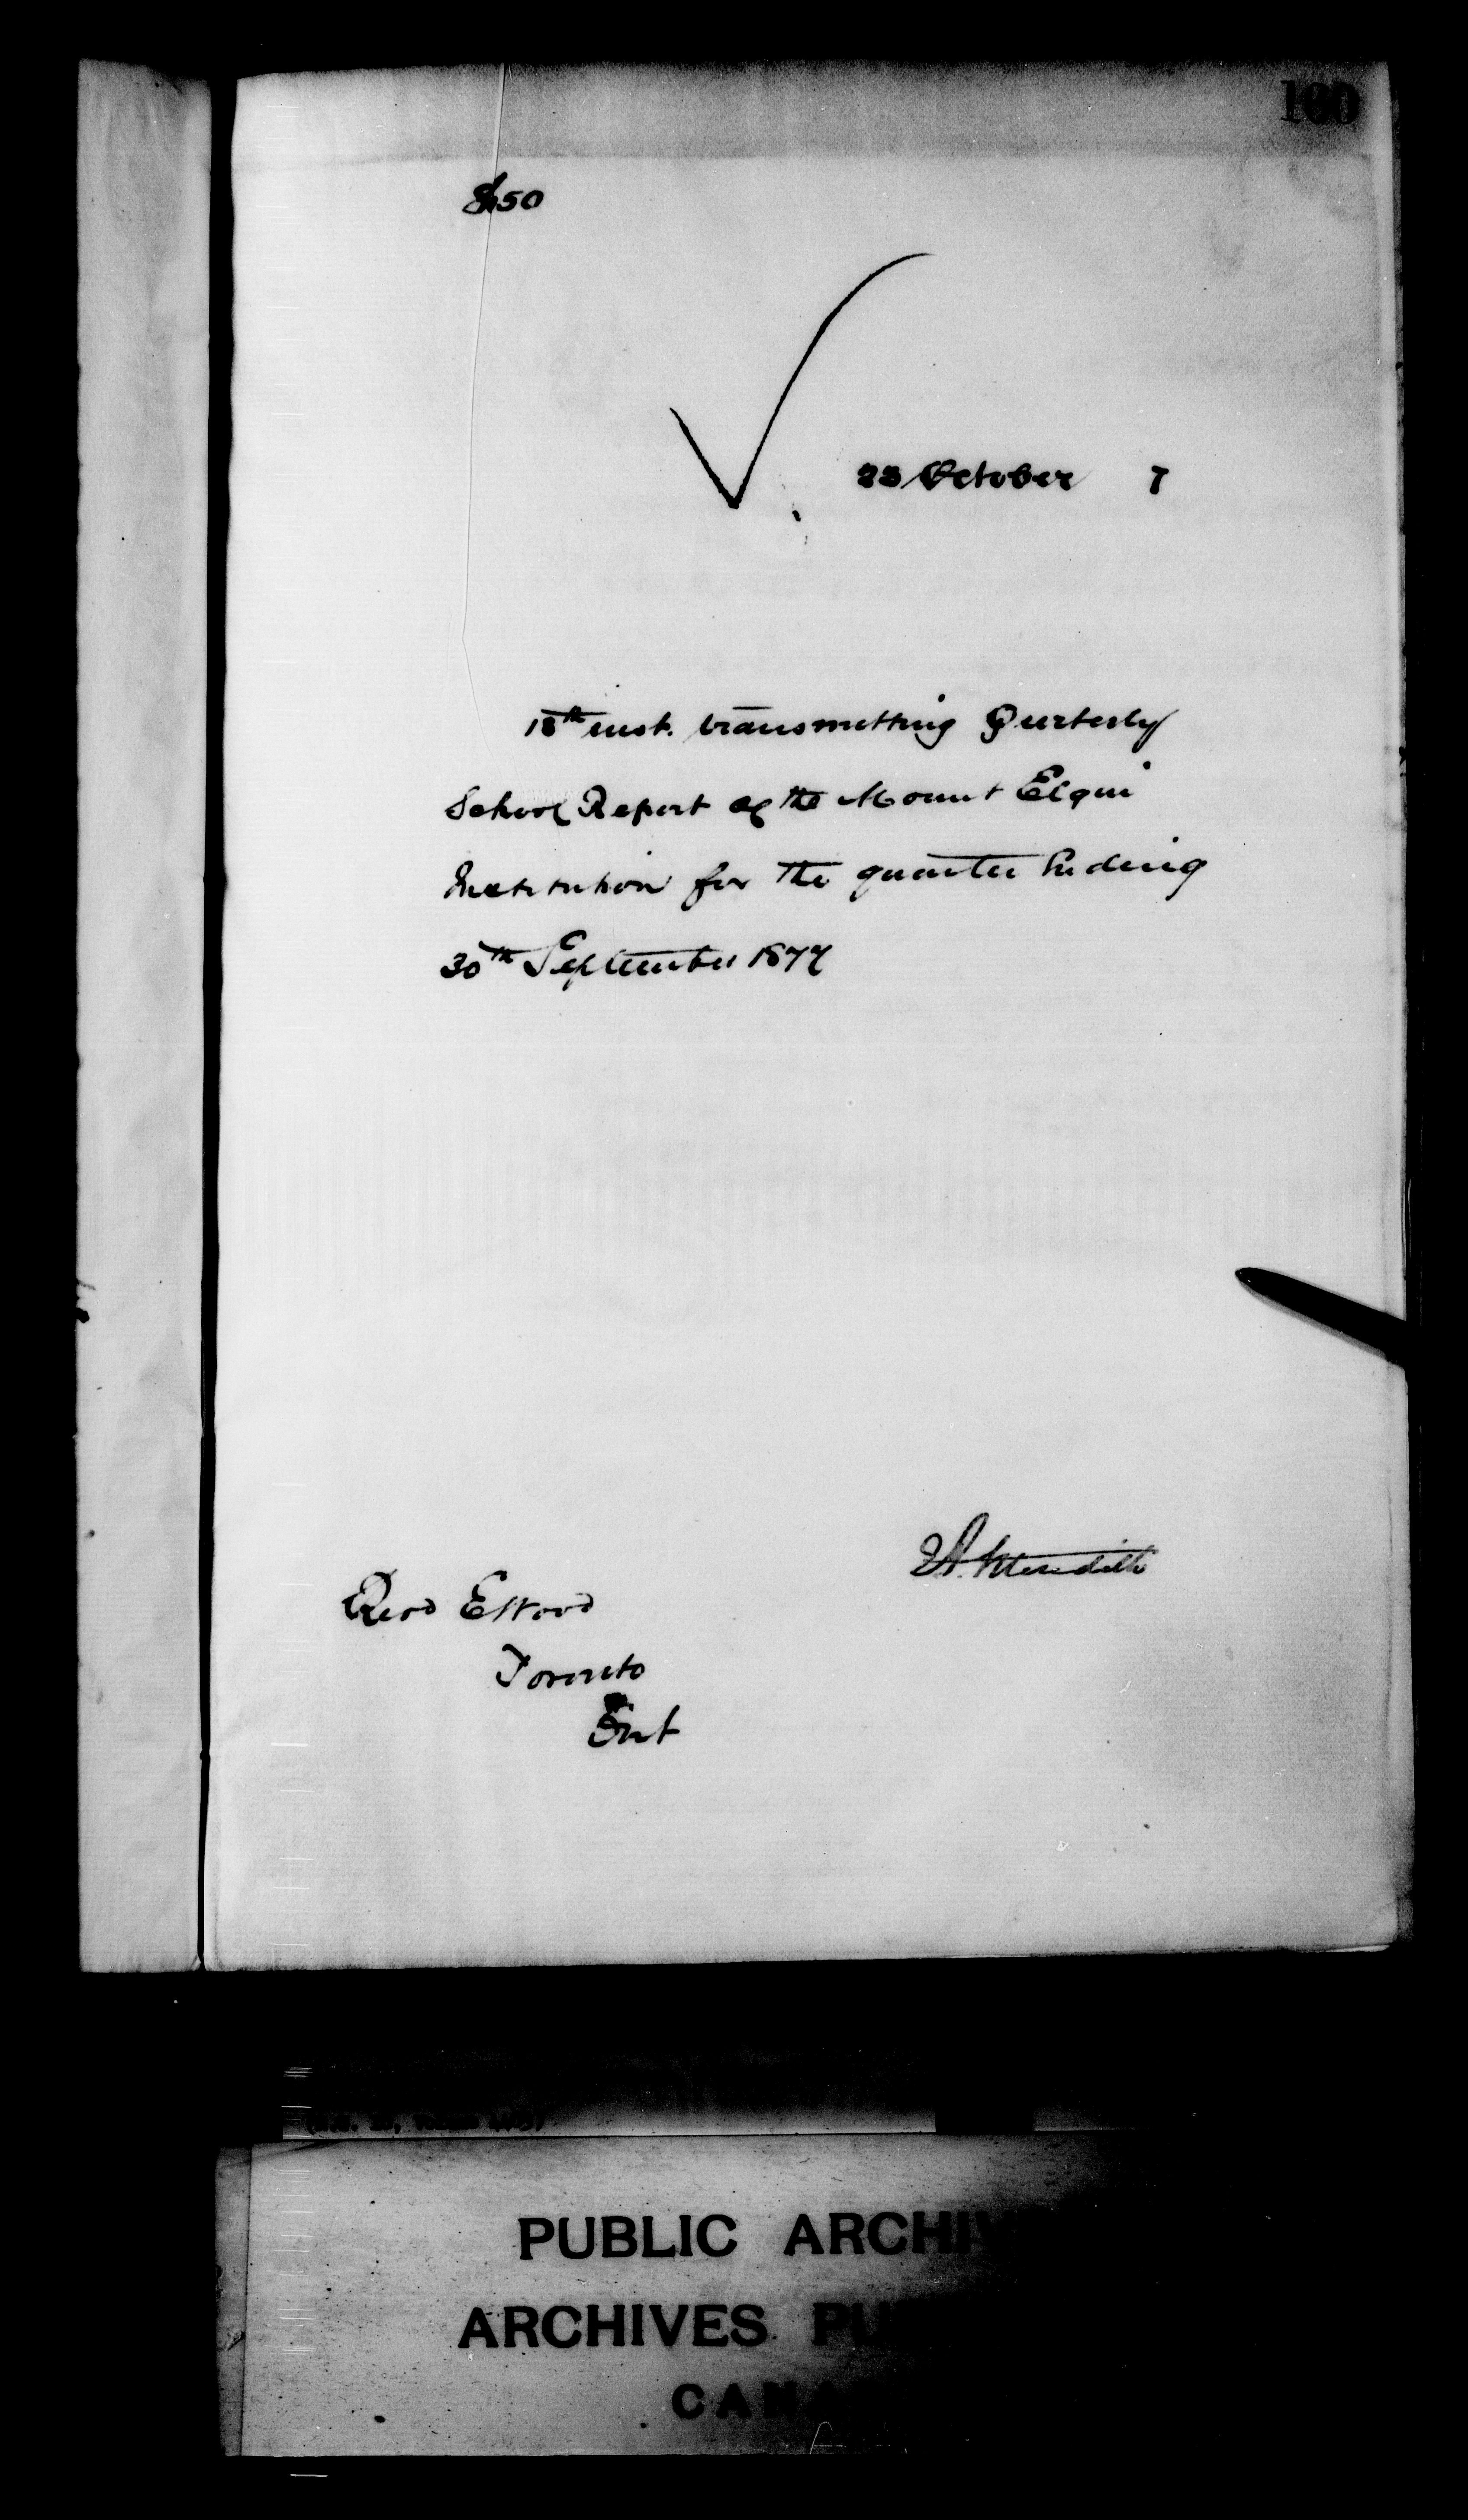 100
8150
23 October 7
18th inst. transmitting Qurterly
School Report of the Mount Elgin
Institution for the quarter Ending
30th September 1877
Meredith
Revd E Wood
Toronto
Ont
PUBLIC ARCHIV
ARCHIVES PU
CANA